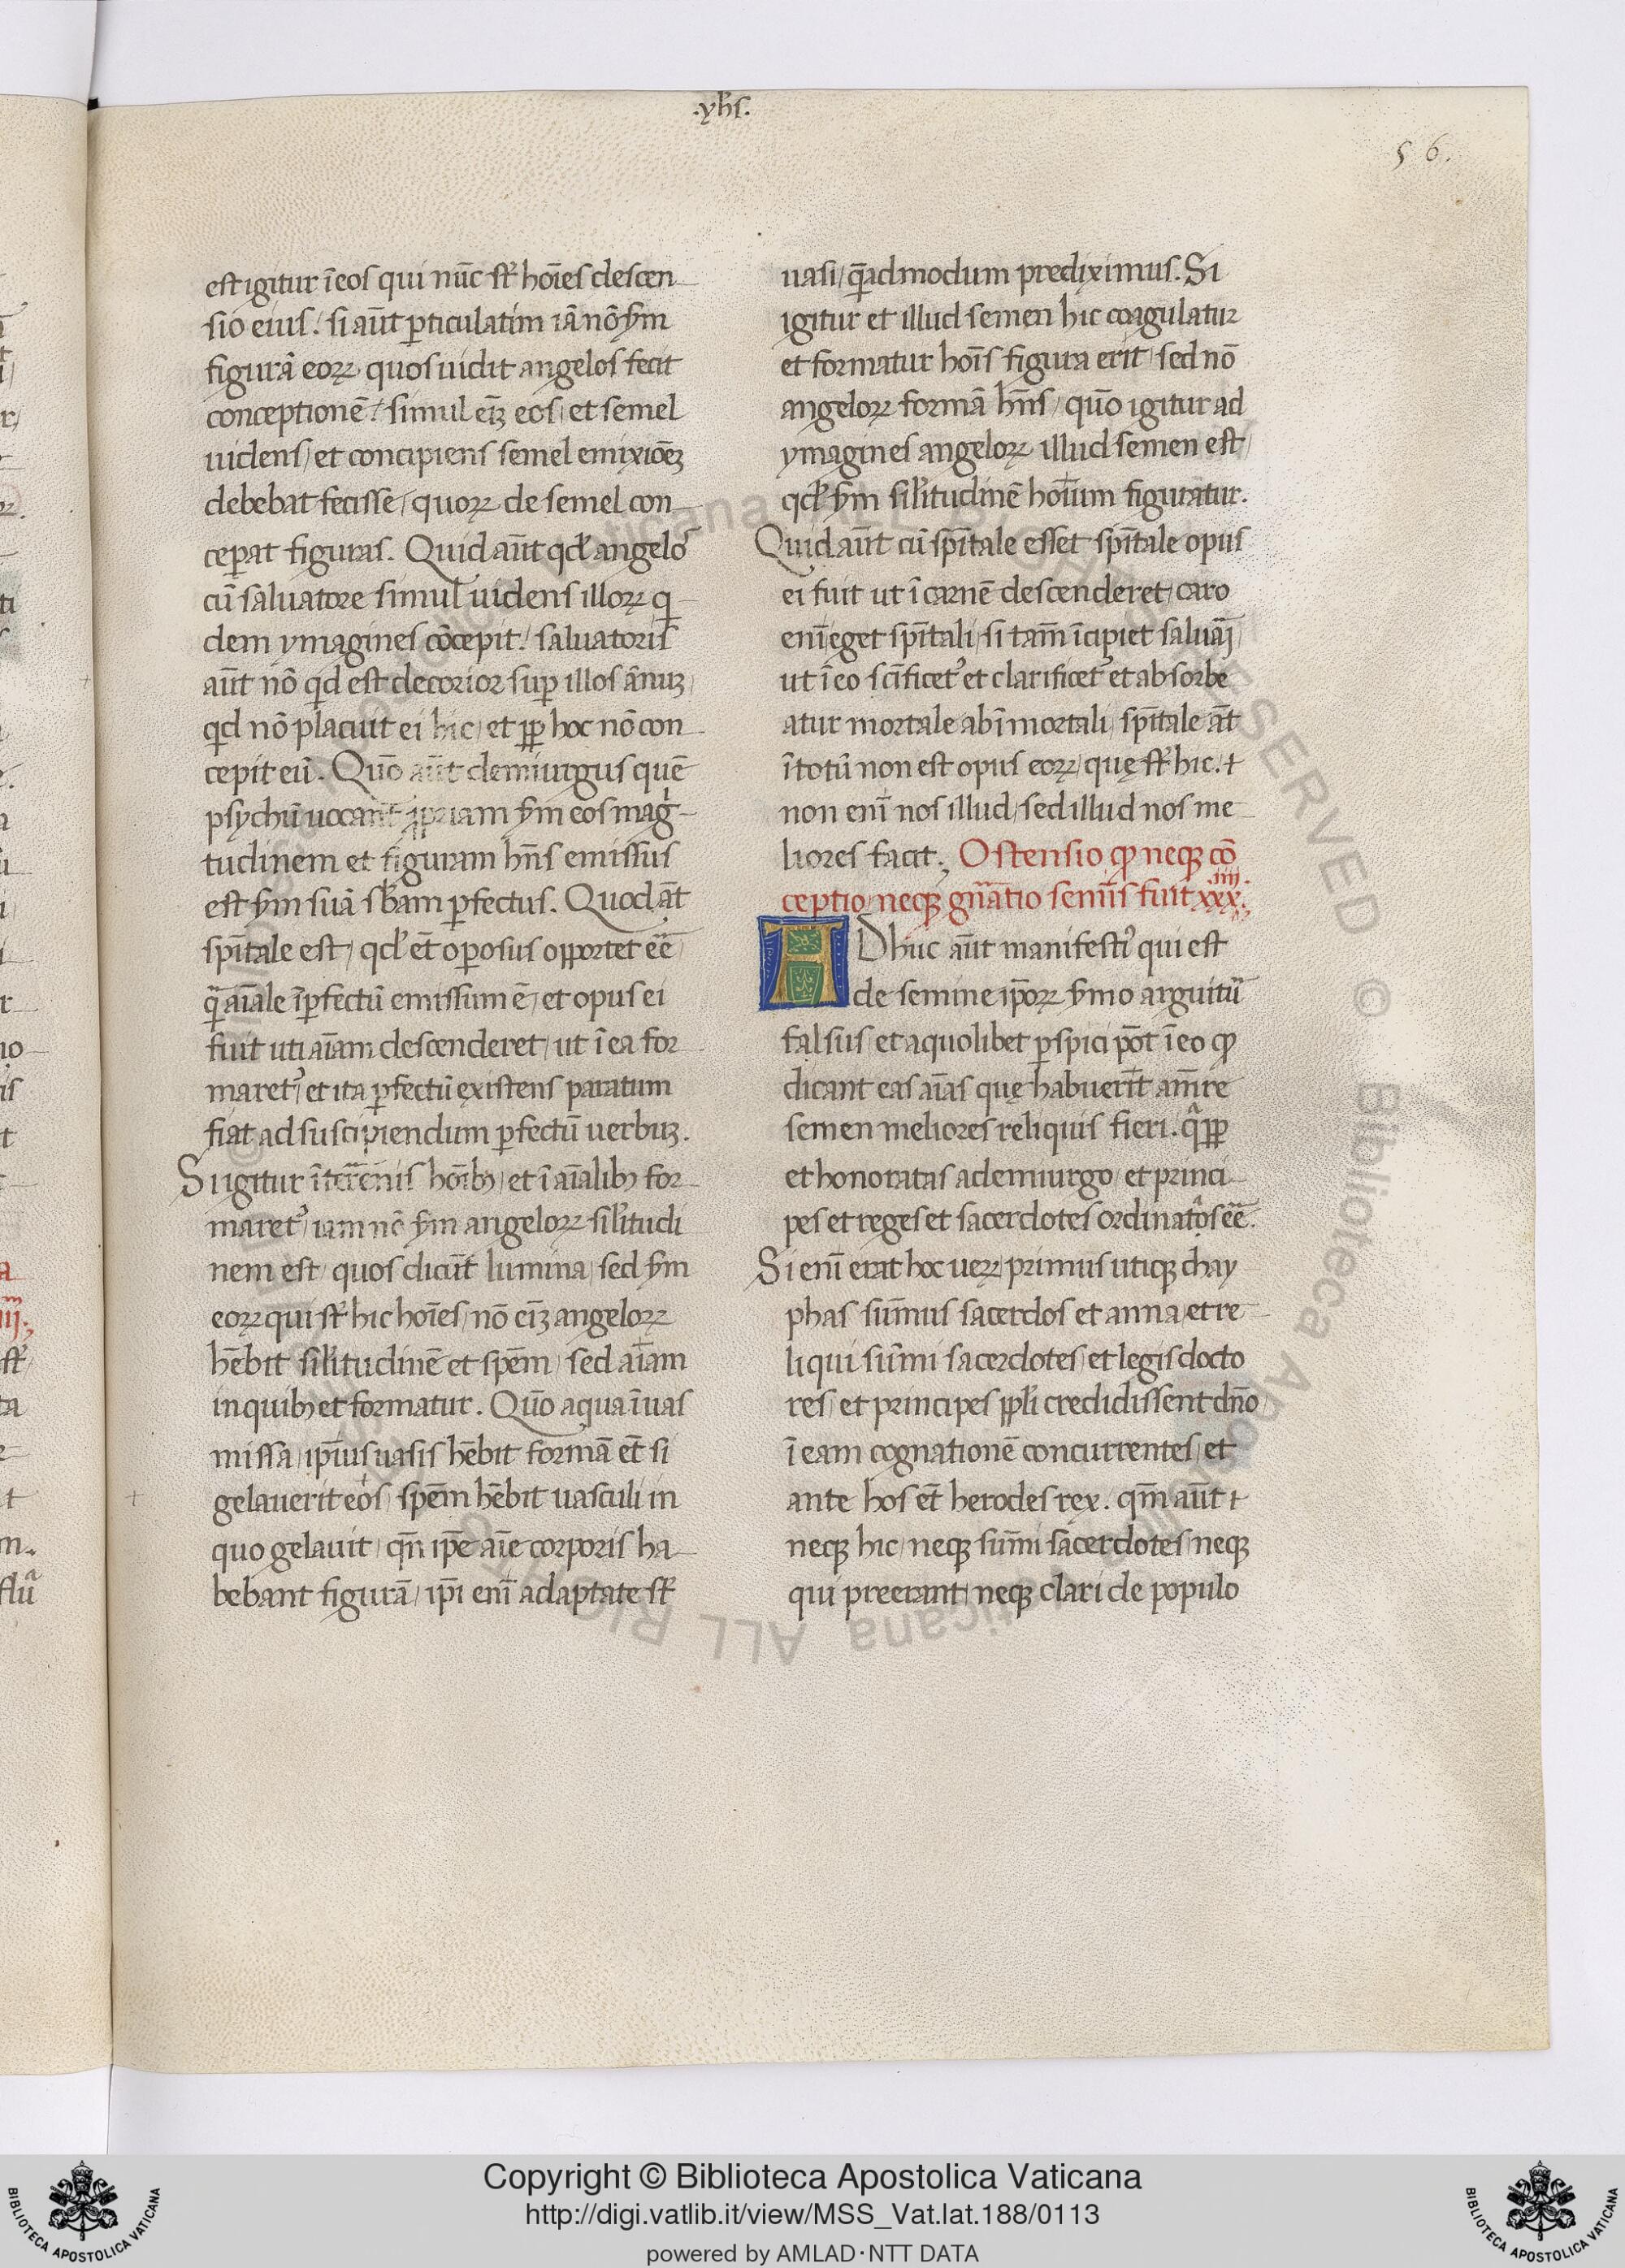 .yhs.
56.
est igitur ī eos qui nūc sr̄ hoīes descen
sio eius. si aūt ꝑticulatim iā nō ẜm
figurā eoꝝ quos uidit angelos fecit
conceptionē. simul eīꝫ eos et semel
uidens et concipiens semel emixiōeꝫ
debebat fecisse quoꝝ de semel con
ceꝑat figuras. Quid aūt qđ angelos
cū saluatore simul uidens illoꝝ q
dem ymagines cōcepit. saluatoris
aūt nō qd est decorior suꝑ illos ānuꝫ
qd nō placuit ei hic et ꝓp̄ hoc nō con
cepit eū. Quō aūt demiurgus quē
psychū uocant ꝓpriam ẜm eos mag
tudinem et figuram hn̄s emissus
est ẜm suā sb̄am ꝑfectus. Quod āt
spīt̄ale est qđ et̄ oꝑosus opportet eē
qͣ aīale īꝑfectū emissum ē et opus ei
fuit uti aīam descenderet ut ī ea for
maret᷑ et ita ꝑfectū existens paratum
fiat ad suscipiendum ꝑfectū uerbuꝫ.
Si igitur ī terrenis hoīb; et ī aīalib; for
maret᷑ iam nō ẜm angeloꝝ sil̄itudi
nem est quos dicūt lumina sed ẜm
eoꝝ qui sr̄ hic hoīes nō eīꝫ angeloꝝ
hēbit sil̄itudinē et spēm sed aīam
in quib; et formatur. Quō aqua ī uas
missa ipīus uasis hēbit formā et̄ si
gelauerit eos spēm hēbit uasculi in
quo gelauit qn̄ ip̄e aīe corporis ha
bebant figurā ip̄i enī adaptate sr̄
uasi qͣadmodum prediximus. Si
igitur et illud semen hic coagulatur
et formatur hoīs figura erit sed nō
angeloꝝ formā hn̄s quō igitur ad
ymagines angeloꝝ illud semen est
qđ ẜm sil̄itudinē hoīum figuratur.
Quid aūt cū spīt̄ale esset spīt̄ale opus
ei fuit ut ī carnē descenderet caro
enī eget spīt̄ali si tam̄ īcipiet saluāi
ut ī eo sc̄ificet᷑ et clarificet᷑ et absorbe
atur mortale ab īmortali spīt̄ale āt
ī totū non est opus eoꝝ quę sr̄ hic. ⁊
non enī nos illud sed illud nos me
liores facit. Ostensio ꝙ neqꝫ cō
ceptio neqꝫ gn̄atio semīs fuit xxxiiii.
ADhuc aūt manifesti᷑ qui est
de semine ip̄oꝝ ẜmo arguitū
falsus et a quolibet ꝑspici pōt ī eo ꝙ
dicant eas aīas quę habuerīt am̄re
semen meliores reliquis fieri. qͣ ꝓp̄
et honoratas a demiurgo et princi
pes et reges et sacerdotes ordinatos eē.
Si enī erat hoc ueꝝ primus utiqꝫ chay
phas sum̄us sacerdos et anna et re
liqui sum̄i sacerdotes et legis docto
res et principes ppl̄i credidissent dn̄o
ī eam cognationē concurrentes et
ante hos et̄ herodes rex. qm̄ aūt ⁊
neqꝫ hic neqꝫ sum̄i sacerdotes neqꝫ
qui preerant neqꝫ clari de populo
Copyright © Biblioteca Apostolica Vaticana
http://digi.vatlib.it/view/MSS_Vat.lat.188/0113
powered by AMLAD·NTT DATA
BIBLIOTECA APOSTOLICA VATICANA
BIBLIOTECA APOSTOLICA VATICANA